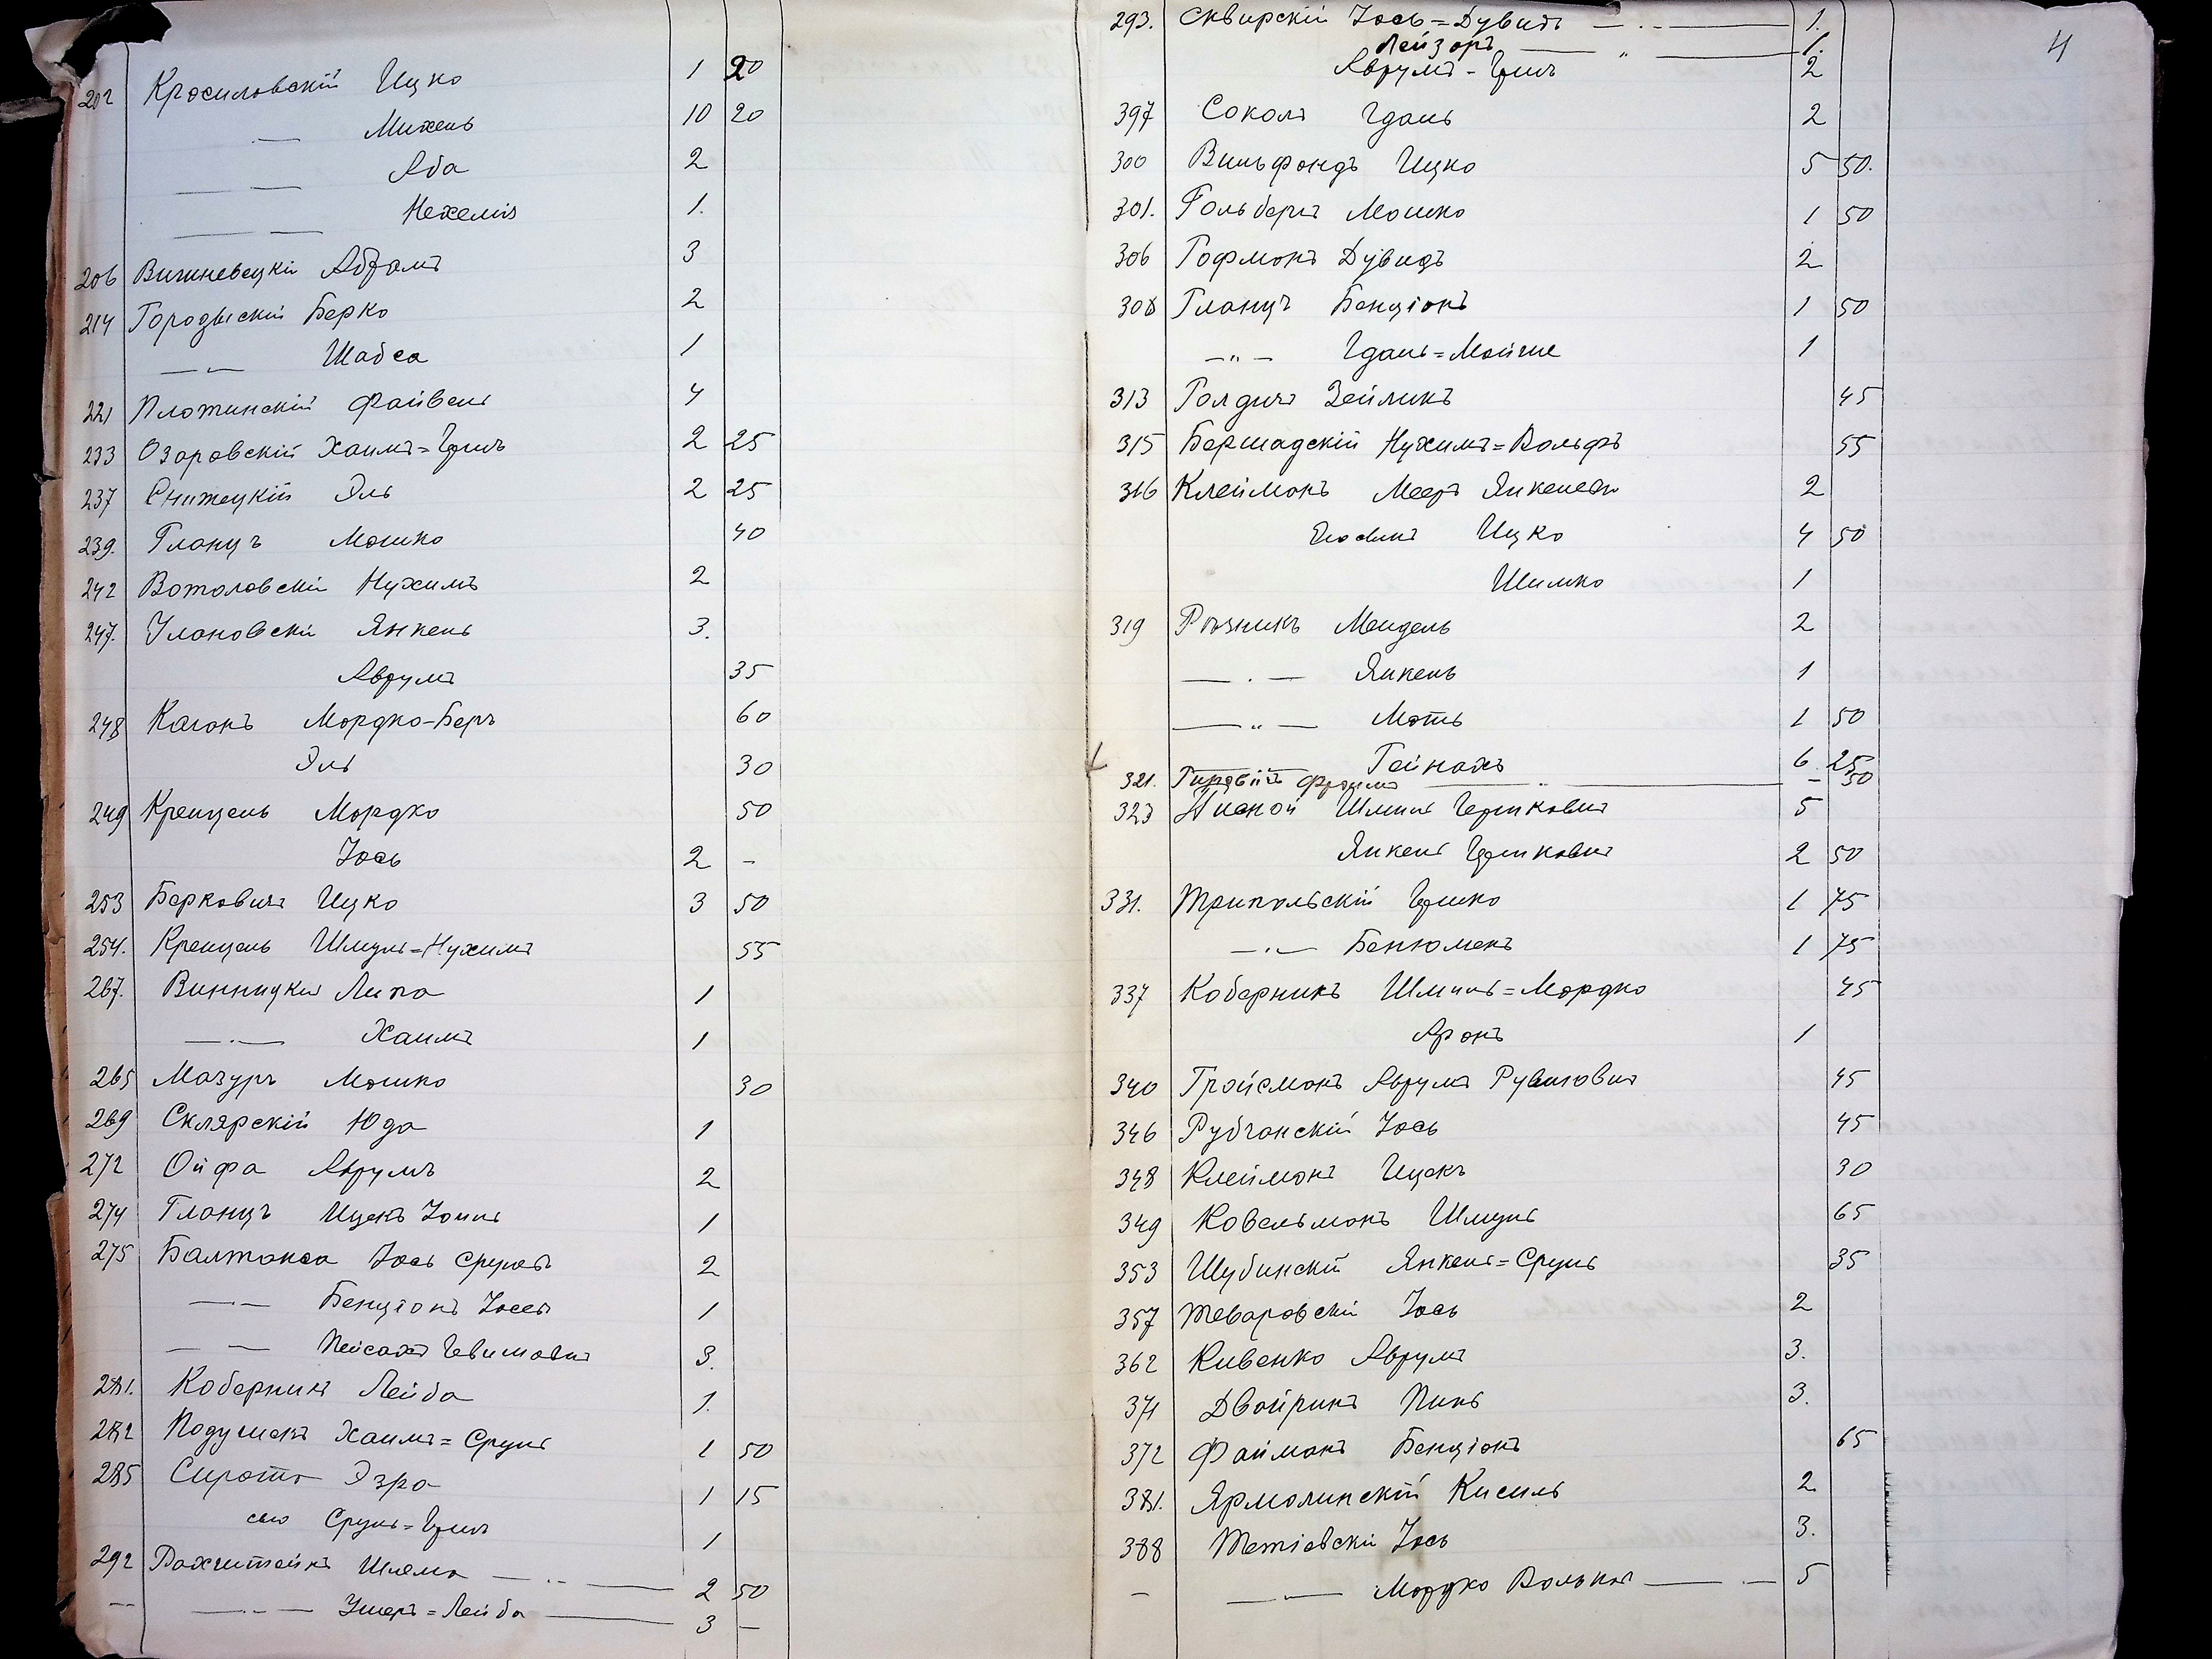 202 Красиловскій Ицко 1 20
— Михель 10 20
— — Аба 2
— — Нехемія 1.
206 Вишневецкій Абрамъ 3
214 Городыскій Берко 2
— " — Шабса 1
221 Плотинскій Файвель 4
233 Озаровскій Хаимъ=Гршъ 2 25
237 Снитецкій Эль 2 25
239. Гланцъ Мошко 40
242 Вотоловскій Нухимъ 2
247. Улановскій Янкель 3.
Аврумъ 35
248 Каганъ Мордко-Беръ 60
Эль 30
249 Кренцель Мордко 50
Іось 2 -
253 Берковичъ Ицко 3 50
254. Кренцель Шмуль=Нухимъ 55
267. Винницкій Липа 1
— . — Хаимъ 1
265 Мазуръ Мошко 30
269 Склярскій Юда 1
272 Ойфа Аврумъ 2
274 Гланцъ Ицекъ Іоиль 1
275 Балтакса Іось Срулев 2
— · — Бенціонъ Іосев 1
— — Пейсахъ 3.
281. Коберникъ Лейба 1.
282 Подушекъ Хаимъ=Сруль 1 50
285 Сирота Эзра 1 15
его Сруль=Гршъ 1
292 Вахштейнъ Шлема — .. — 2 50
-- — .. — Ушеръ=Лейба — 3 —
4
293. Сквирскій Іось=Дувидъ — .. — 1.
Лейзоръ — " — 1.
Аврумъ-Гршъ 2
397 Соколъ Гдаль 2
300 Вильфондъ Ицко 5 50.
301. Гольберъ Мошко 1 50
306 Гофманъ Дувидъ 2
308 Гланцъ Бенціонъ 1 50
— " — Гдаль=Мойше 1
313 Голдичъ Зейликъ 45
315 Бершадскій Нухимъ=Вольфъ 55
316 Клейманъ Мееръ Янкелев 2
Ицко 4 50
Шимко 1
319 Рѣзникъ Мендель 2
— . — Янкель 1
— " — Моть 1 50
Гейнахъ 6 25
321. Фроимъ — .. — - 50
323 Шмиль 5
Янкель 2 50
331. Трипольскій Гршко 1 75
— . — Бенюменъ 1 75
337 Коберникъ Шмиль=Мордко 45
Аронъ 1
340 Гройсманъ Аврумъ Рувиновичъ 45
346 Рубчанскій Іось 45
348 Клейманъ Ицекъ 30
349 Ковельманъ Шмуль 65
353 Шубинскій Янкель=Сруль 35
357 Теваровскій Іось 2
362 Кивенко Аврумъ 3.
371 Двойринъ Пинь 3.
372 Файманъ Бенціонъ 65
381. Ярмолинскій Кисиль 2
388 Тетіевскій Іось 3.
— — .. — Мордко Волько — . — 5